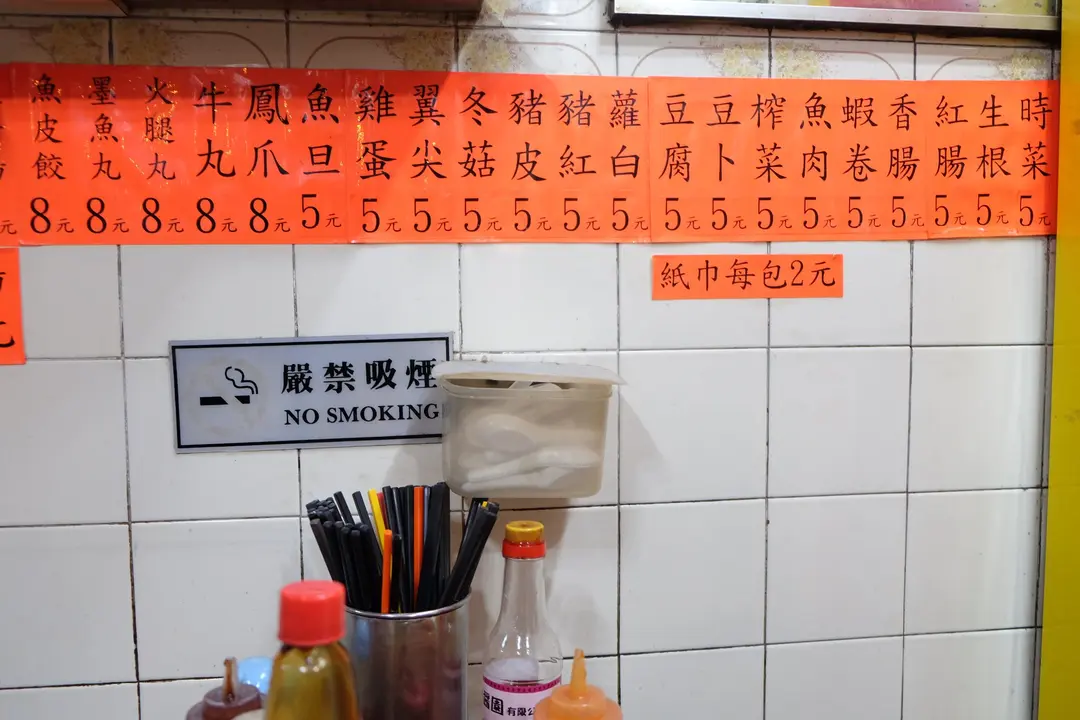 時菜5元
生根5元
紅腸5元
香腸5元
蝦卷5元
魚肉5元
榨菜5元
豆卜5元
豆腐5元
蘿白5元
豬紅5元
豬皮5元
冬菇5元
翼尖5元
雞蛋5元
魚旦5元
鳳爪8元
牛丸8元
火腿丸8元
墨魚丸8元
魚皮餃8元
紙巾每包2元
嚴禁吸煙
NO SMOKING
園有限公